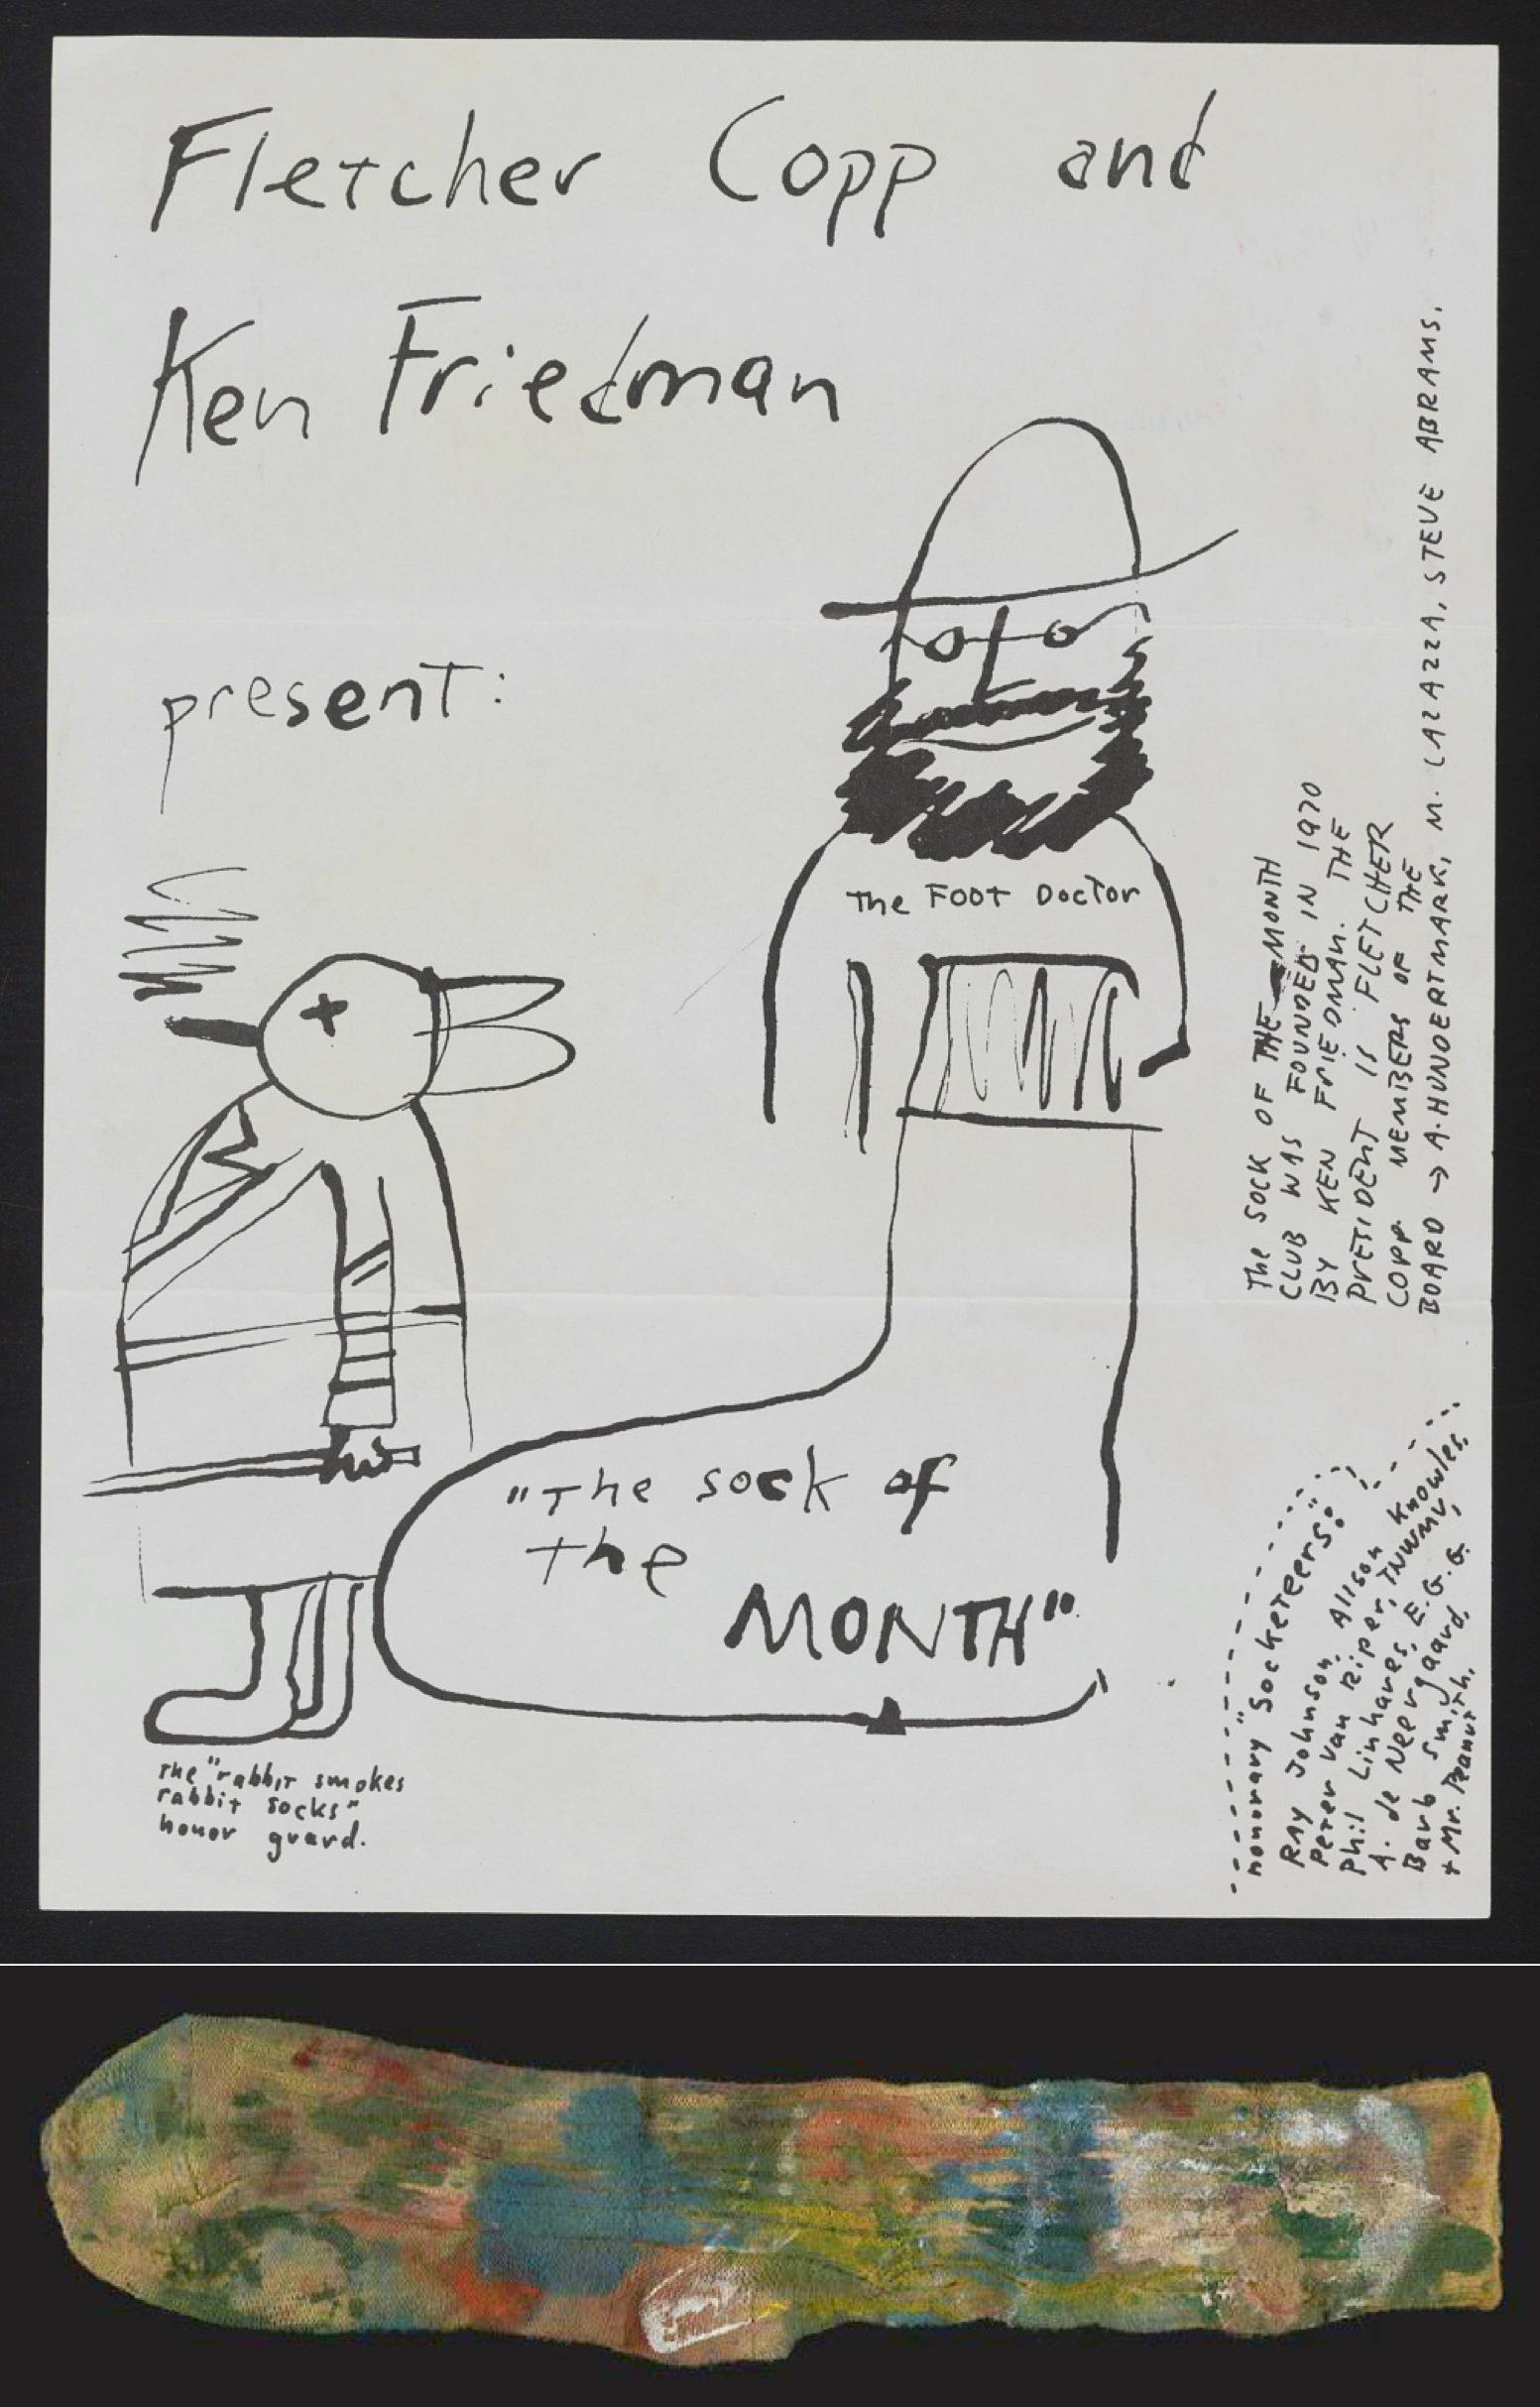 Fletcher Copp and
Ken Friedman
present:
The Foot Doctor
"The sock of
the
MONTH"
the "rabbit smokes
rabbit socks"
honor guard.
The SOCK OF THE MONTH
CLUB WAS FOUNDED IN 1970
BY KEN FRIEDMAN. THE
PRESIDENT IS FLETCHER
COPP. MEMBERS OF THE
BOARD → A. HUNDERTMARK, M. LAZAZZA, STEVE ABRAMS.
honorary "Socketeers":
RAY Johnson, Allison Knowles,
Peter Van Riper, TNWMV,
Phil Linhares, E.G.G.,
A. de Neergaard,
Barb Smith,
+ Mr. Peanut.